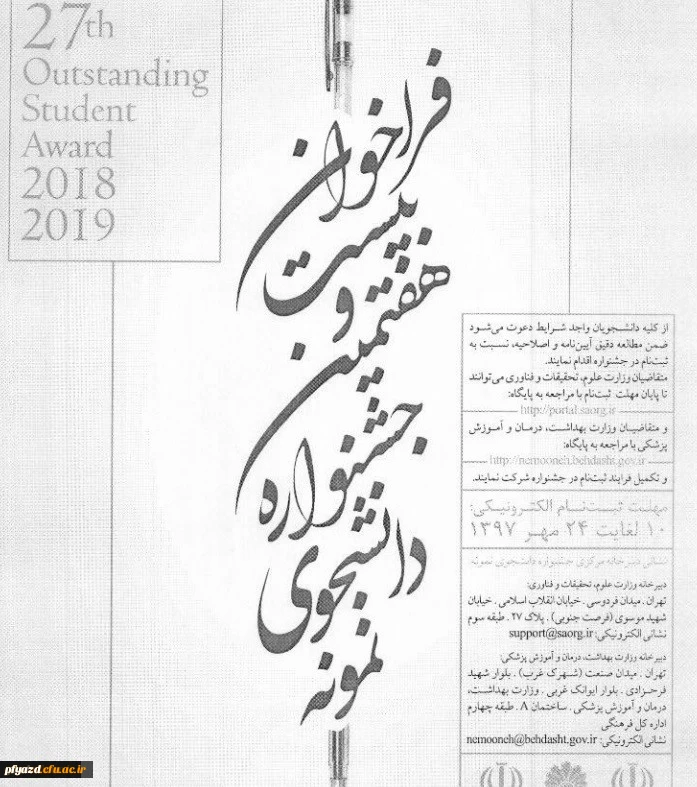 27th
Outstanding
Student
Award
2018
2019
فراخوان
بیست
و
هفتمین
جشنواره
دانشجوی
نمونه
از کلیه دانشـجویان واجد شـرایط دعوت می‌شـود
ضمن مطالعه دقیق آیین‌نامه و اصلاحیه، نسبت به
ثبت‌نام در جشنواره اقدام نمایند.
متقاضیان وزارت علوم، تحقیقات و فناوری می‌توانند
تا پایان مهلت ثبت‌نام با مراجعه به پایگاه:
http://portal.saorg.ir
و متقاضیـان وزارت بهداشـت، درمـان و آمـوزش
پزشکی با مراجعه به پایگاه:
http://nemooneh.behdasht.gov.ir
و تکمیل فرایند ثبت‌نام در جشنواره شرکت نمایند.
مهلت ثبـت‌نـام الکتـرونیکی:
۱۰ لغایت ۲۴ مهـر ۱۳۹۷
نشانی دبیرخانه مرکزی جشنواره دانشجوی نمونه:
دبیرخانه وزارت علوم، تحقیقات و فناوری:
تهران . میدان فردوسی . خیابان انقلاب اسلامی . خیابان
شهید موسوی (فرصت جنوبی) . پلاک ۲۷ . طبقه سوم
نشانی الکترونیکی: support@saorg.ir
دبیرخانه وزارت بهداشت، درمان و آموزش پزشکی:
تهران . میدان صنعت (شـهرک غرب) . بلوار شهید
فرحـزادی . بلوار ایوانک غربی . وزارت بهداشـت،
درمان و آموزش پزشکی . ساختمان A . طبقه چهارم
اداره کل فرهنگی
نشانی الکترونیکی: nemooneh@behdasht.gov.ir
pfyazd.cfu.ac.ir